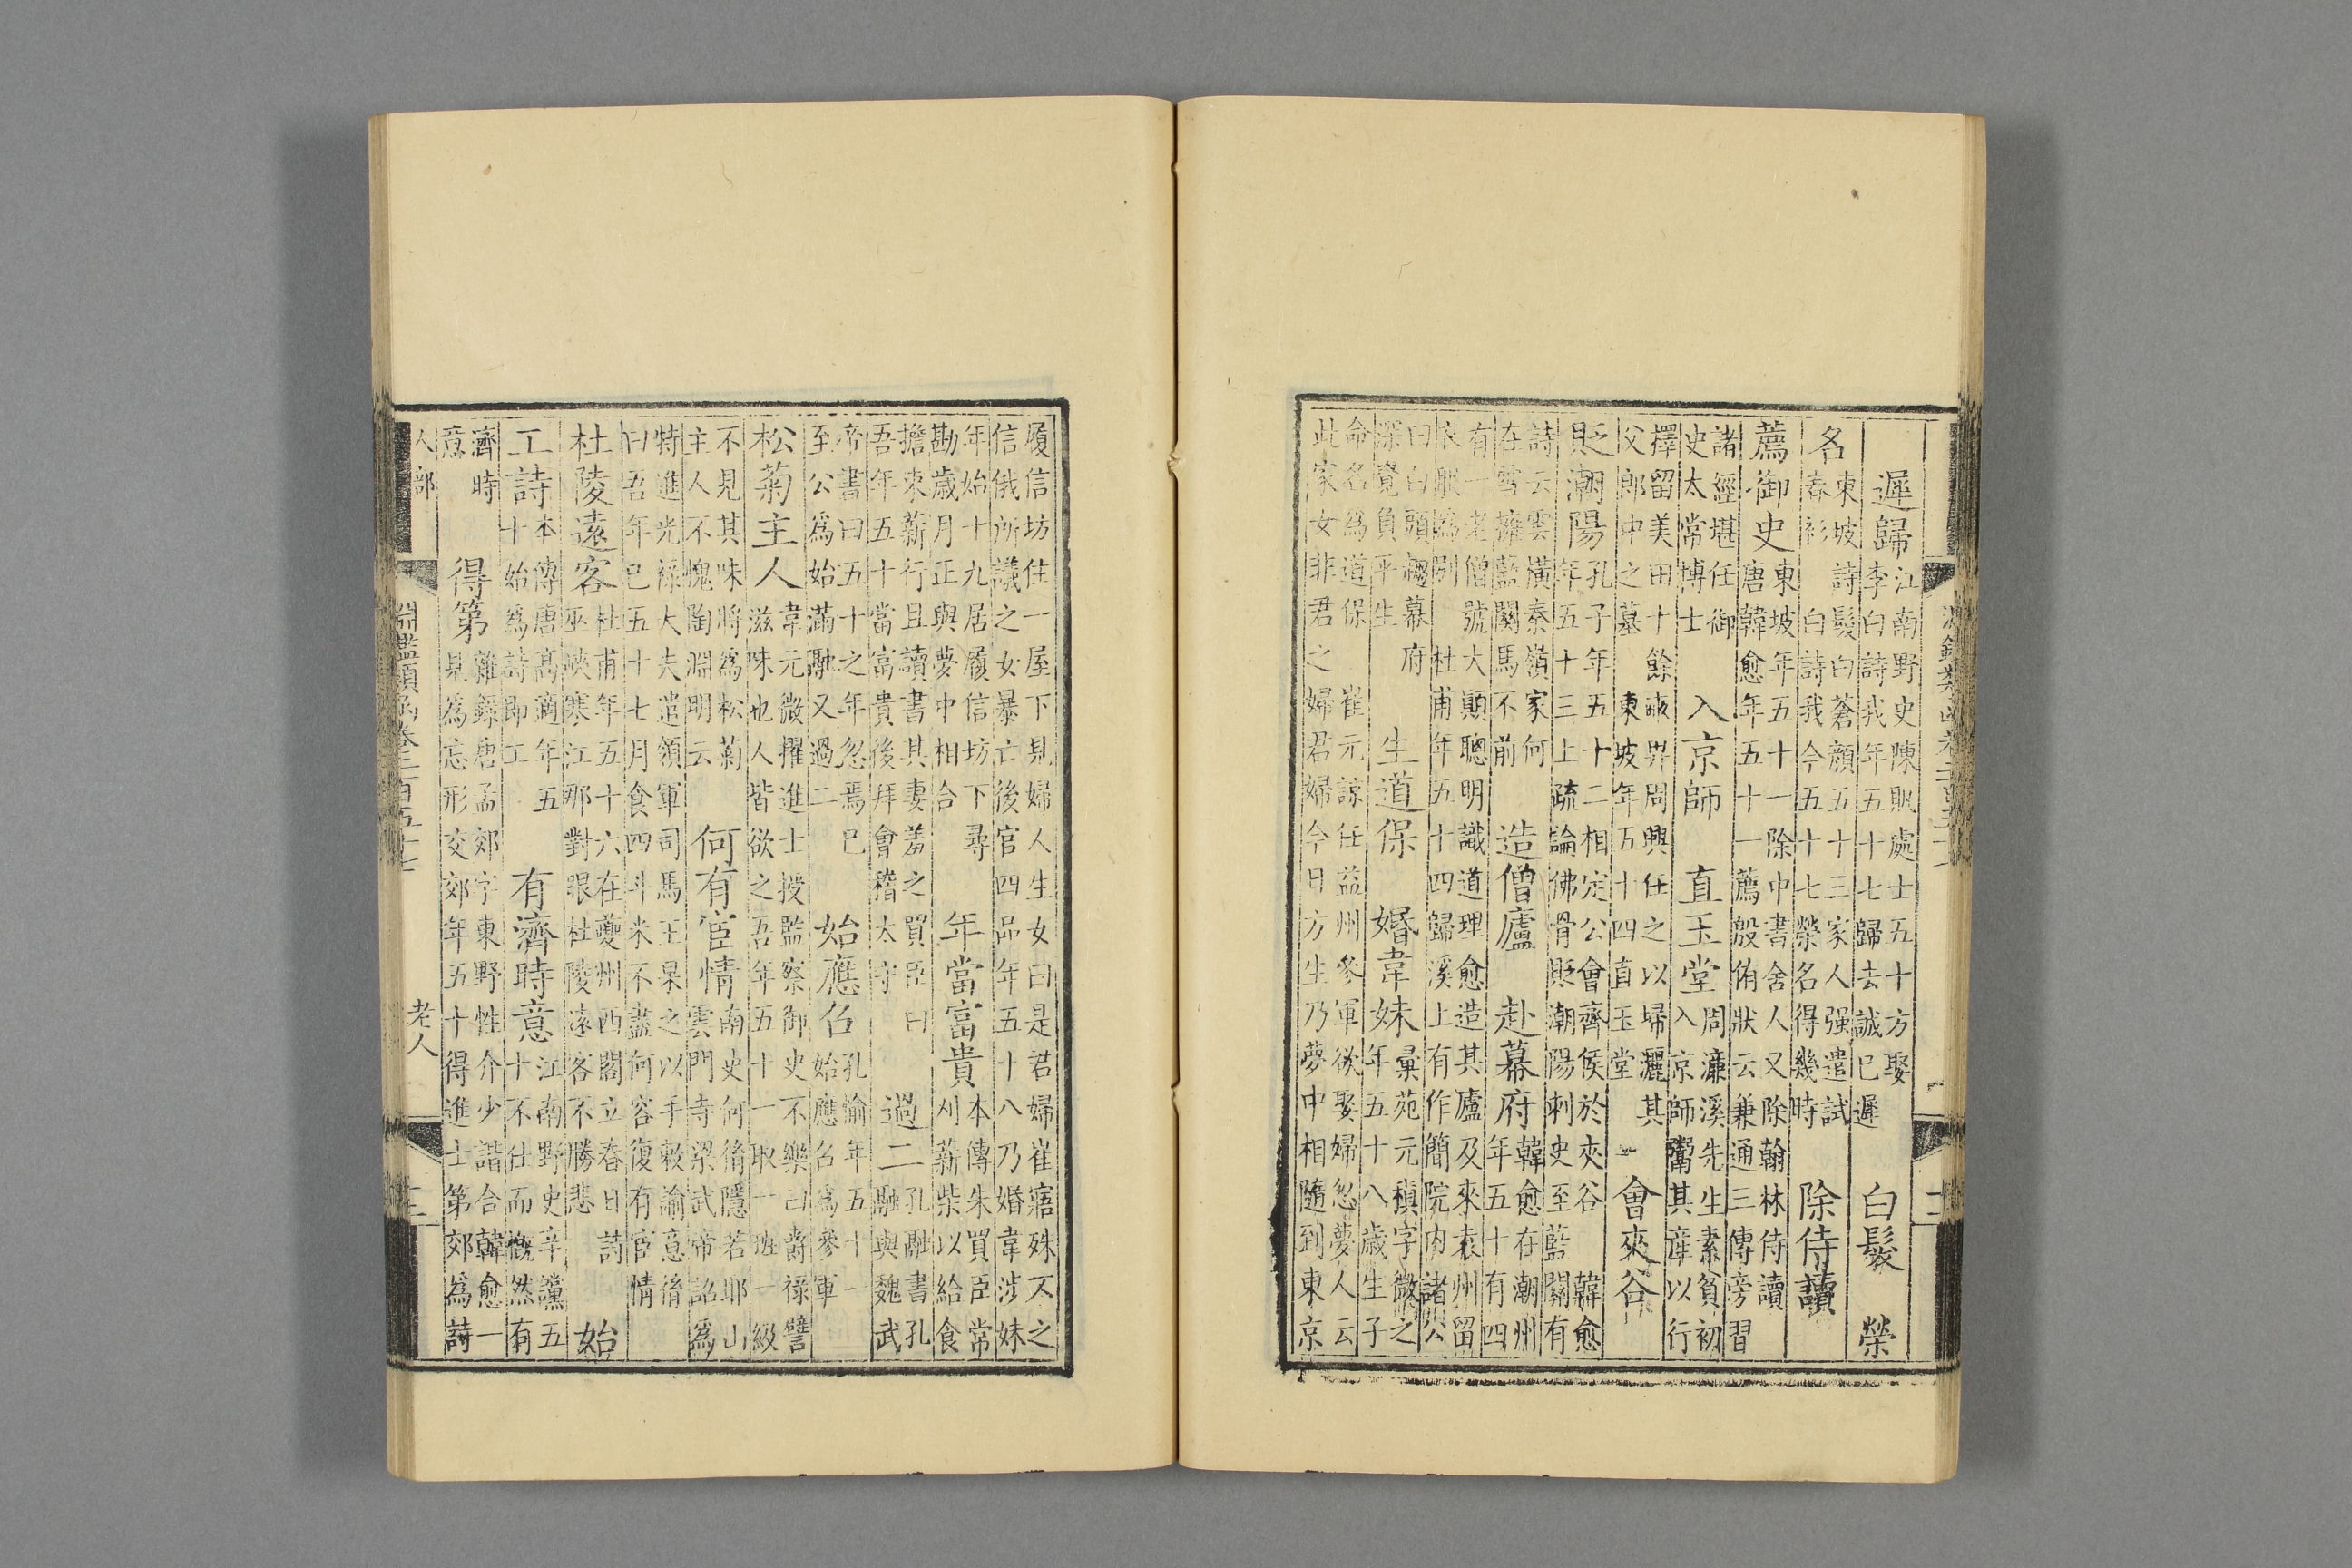 遲歸江南野史陳貺處士五十方娶李白詩我年五十七歸去誠已遲白髮榮
名東坡詩髮白蒼顔五十三家人强遣試春衫白詩我今五十七榮名得幾時除侍讀
薦御史東坡年五十一除中書舍人又除翰林侍讀唐韓愈年五十一薦殷侑狀云兼通三傳旁習
諸經堪任御史太常博士入京師直玉堂周濂溪先生素貧初入京師鬻其產以行
擇留美田十餘畝畀周興任之以埽灑其父郎中之墓東坡年五十四直玉堂會夾谷
貶潮陽孔子年五十二相定公會齊侯於夾谷韓愈年五十三上疏論佛骨貶潮陽刺史至藍關有
詩云雲橫秦嶺家何在雪擁藍關馬不前造僧廬赴幕府韓愈在潮州年五十有四
有一老僧號大顛聰明識道理愈造其廬及來袁州留衣服爲別杜甫年五十四歸溪上有作簡院内諸公
曰白頭趨幕府深覺負平生生道保婚韋妹彙苑元稹字微之年五十八歲生子
命名爲道保崔元諒任益州參軍欲娶婦忽夢人云此家女非君之婦君婦今日方生乃夢中相隨到東京
履信坊住一屋下見婦人生女曰是君婦崔寤殊不之信俄所議之女暴亡後官四品年五十八乃婚韋涉妹
年始十九居履信坊下尋勘歲月正與夢中相合年當富貴本傳朱買臣常刈薪柴以給食
擔束薪行且讀書其妻羞之買臣曰吾年五十當富貴後拜會稽太守過二孔融書孔融與魏武
帝書曰五十之年忽焉已至公爲始滿融又過二始應召孔愉年五十一始應召爲參軍
松菊主人韋元微擢進士授監察御史不樂曰爵祿譬滋味也人皆欲之吾年五十一取一班一級
不見其味將爲松菊主人不愧陶淵明云何有宦情南史何脩隱若耶山雲門寺梁武帝詔爲
特進光祿大夫遣領軍司馬王杲之以手敕諭意脩曰吾年已五十七月食四斗米不盡何容復有宦情
杜陵遠客杜甫年五十六在夔州西閣立春日詩巫峽寒江那對眼杜陵遠客不勝悲始
工詩本傳唐高適年五十始爲詩即工有濟時意江南野史辛讜五十不仕而慨然有
濟時意得第雜錄唐孟郊字東野性介少諧合韓愈一見爲忘形交郊年五十得進士第郊爲詩
人部 淵鑑類函卷二百五十七 老人